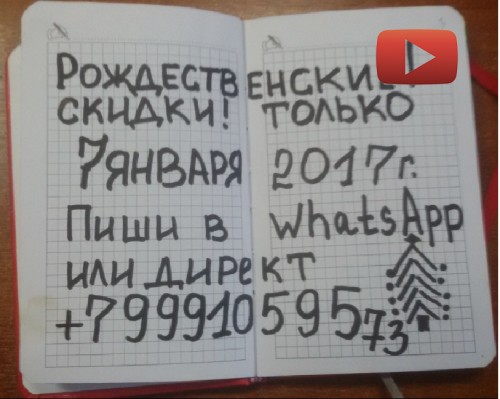 РОЖДЕСТВЕНСКИЕ!
СКИДКИ! ТОЛЬКО
7ЯНВАРЯ 2017г.
Пиши в WhatsApp
или директ
+79991059573